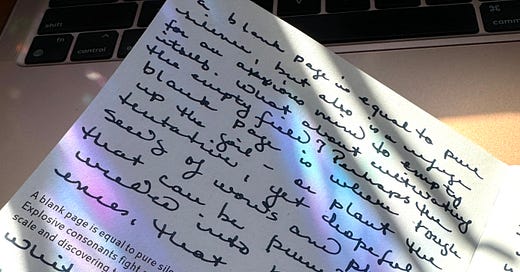 shift
fn
control
command
a blank page is equal to pure
silence, but also is a refuge
for an anxious mind to empty
itself. What about cultivating
the empty field? Perhaps the
blank page is where
up the soil – or plant the
tentative, yet hopeful
seeds of words and
that can be
weeded into
that
whit
A blank page is equal to pure sile
Explosive consonants fight
scale and discovering